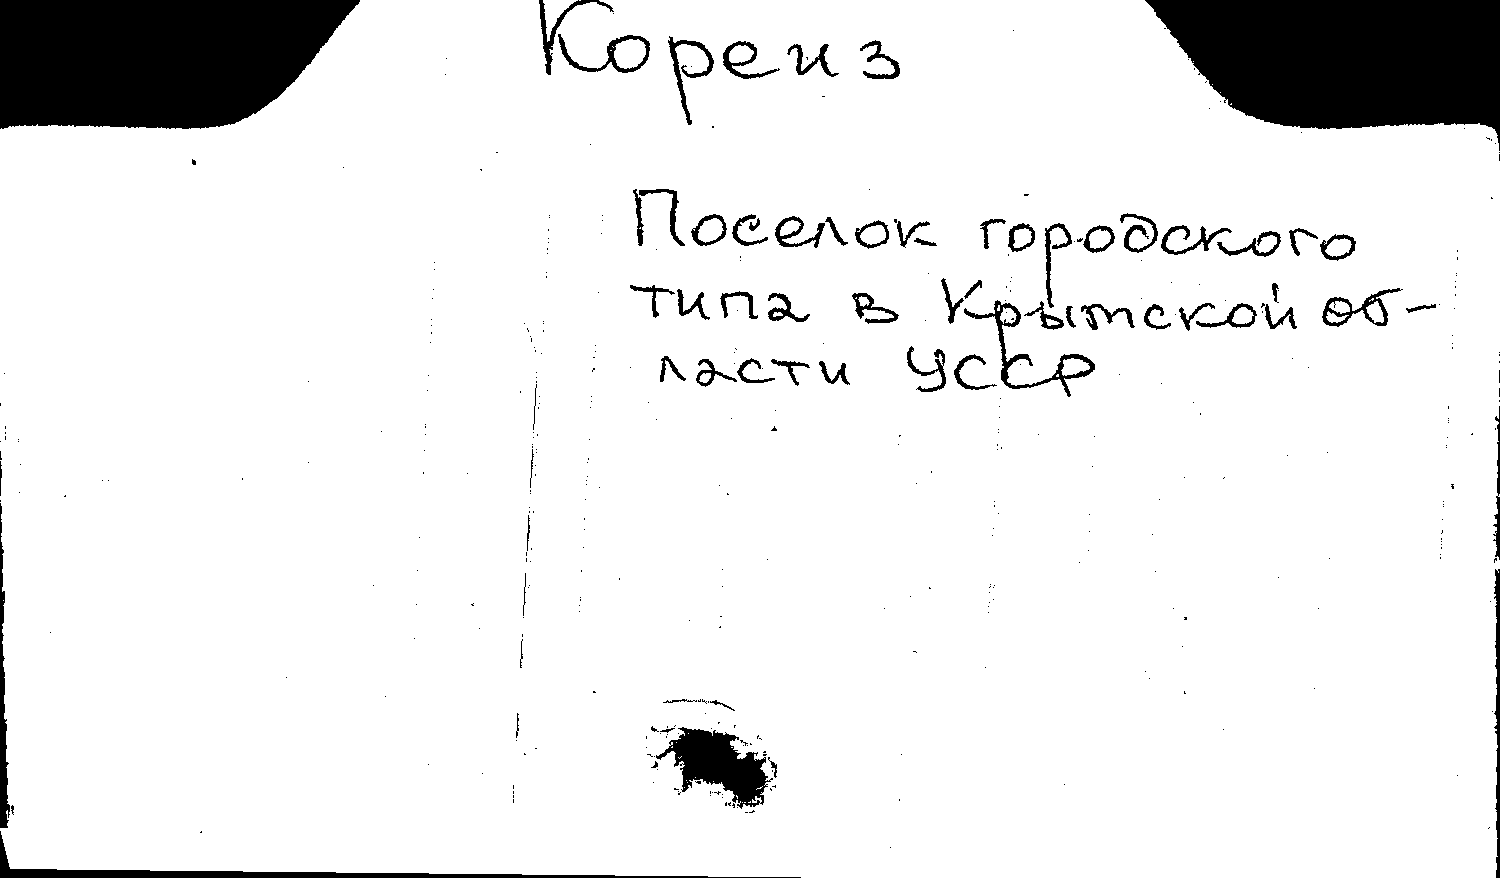 Кореиз
Поселок городского
типа в Крымской об-
ласти УССР